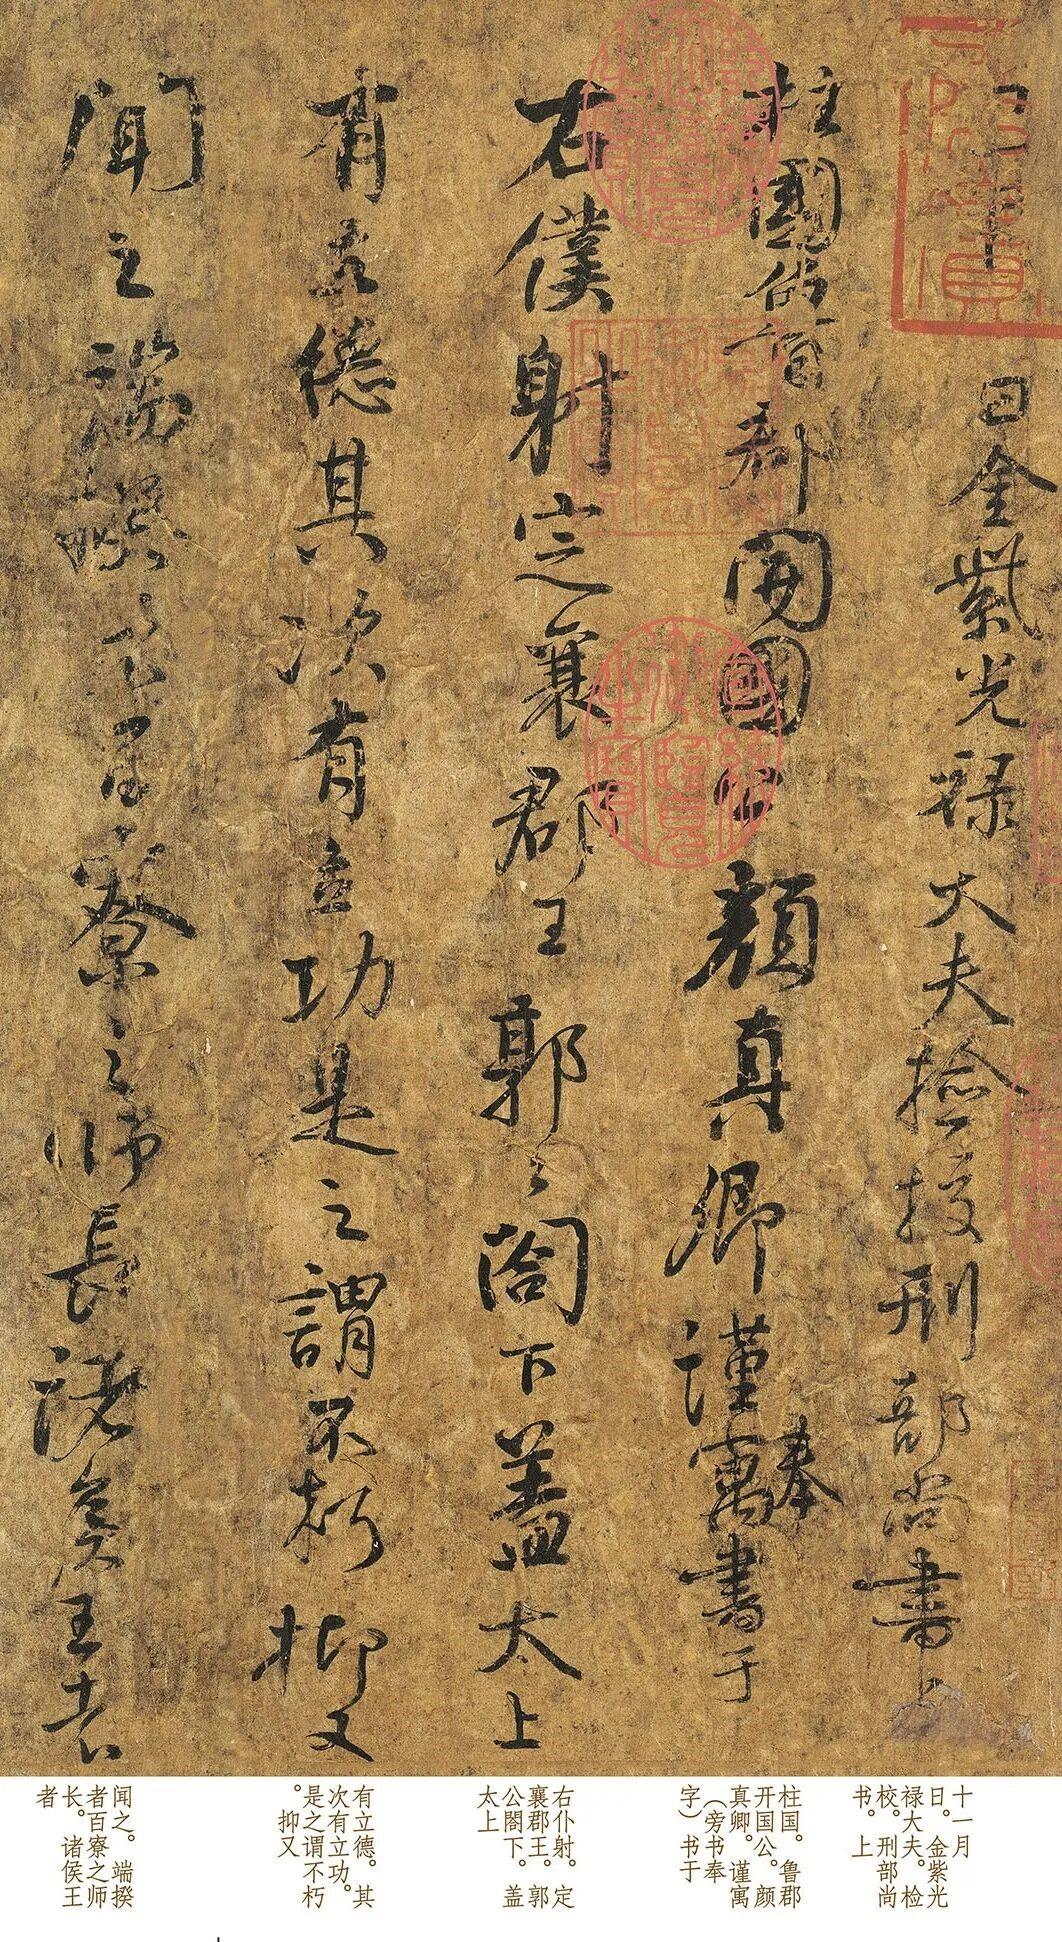 十一月
日金紫光祿大夫撿挍刑部尚書上
柱國魯郡開國公顏真卿謹奉寓書于
右僕射定襄郡王郭公閤下蓋太上
有立德其次有立功是之謂不朽抑又
聞之端揆者百寮之師長諸矦王者
十一月
日。金紫光
禄大夫。检
校。刑部尚
书。上
柱国。鲁郡
开国公。颜
真卿。谨寓
（旁书奉
字）书于
右仆射。定
襄郡王。郭
公閤下。盖
太上
有立德。其
次有立功。
是之谓不朽
。抑又
闻之。端揆
者百寮之师
长。诸侯王
者